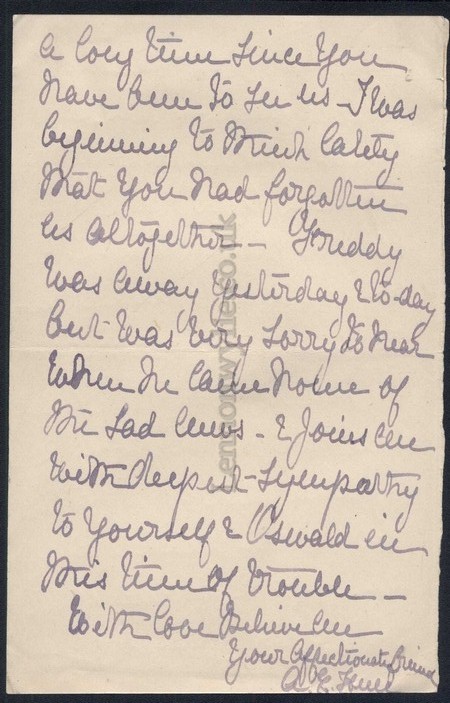 a long time since you
have been to see us - I was
beginning to think lately
that you had forgotten
us altogether - Freddy
was away yesterday & to-day
but was very sorry to hear
when he came home of
the sad news - & joins me
with deepest sympathy
to yourself & Oswald in
this time of trouble -
With love Believe me
Your affectionate friend
A. E.